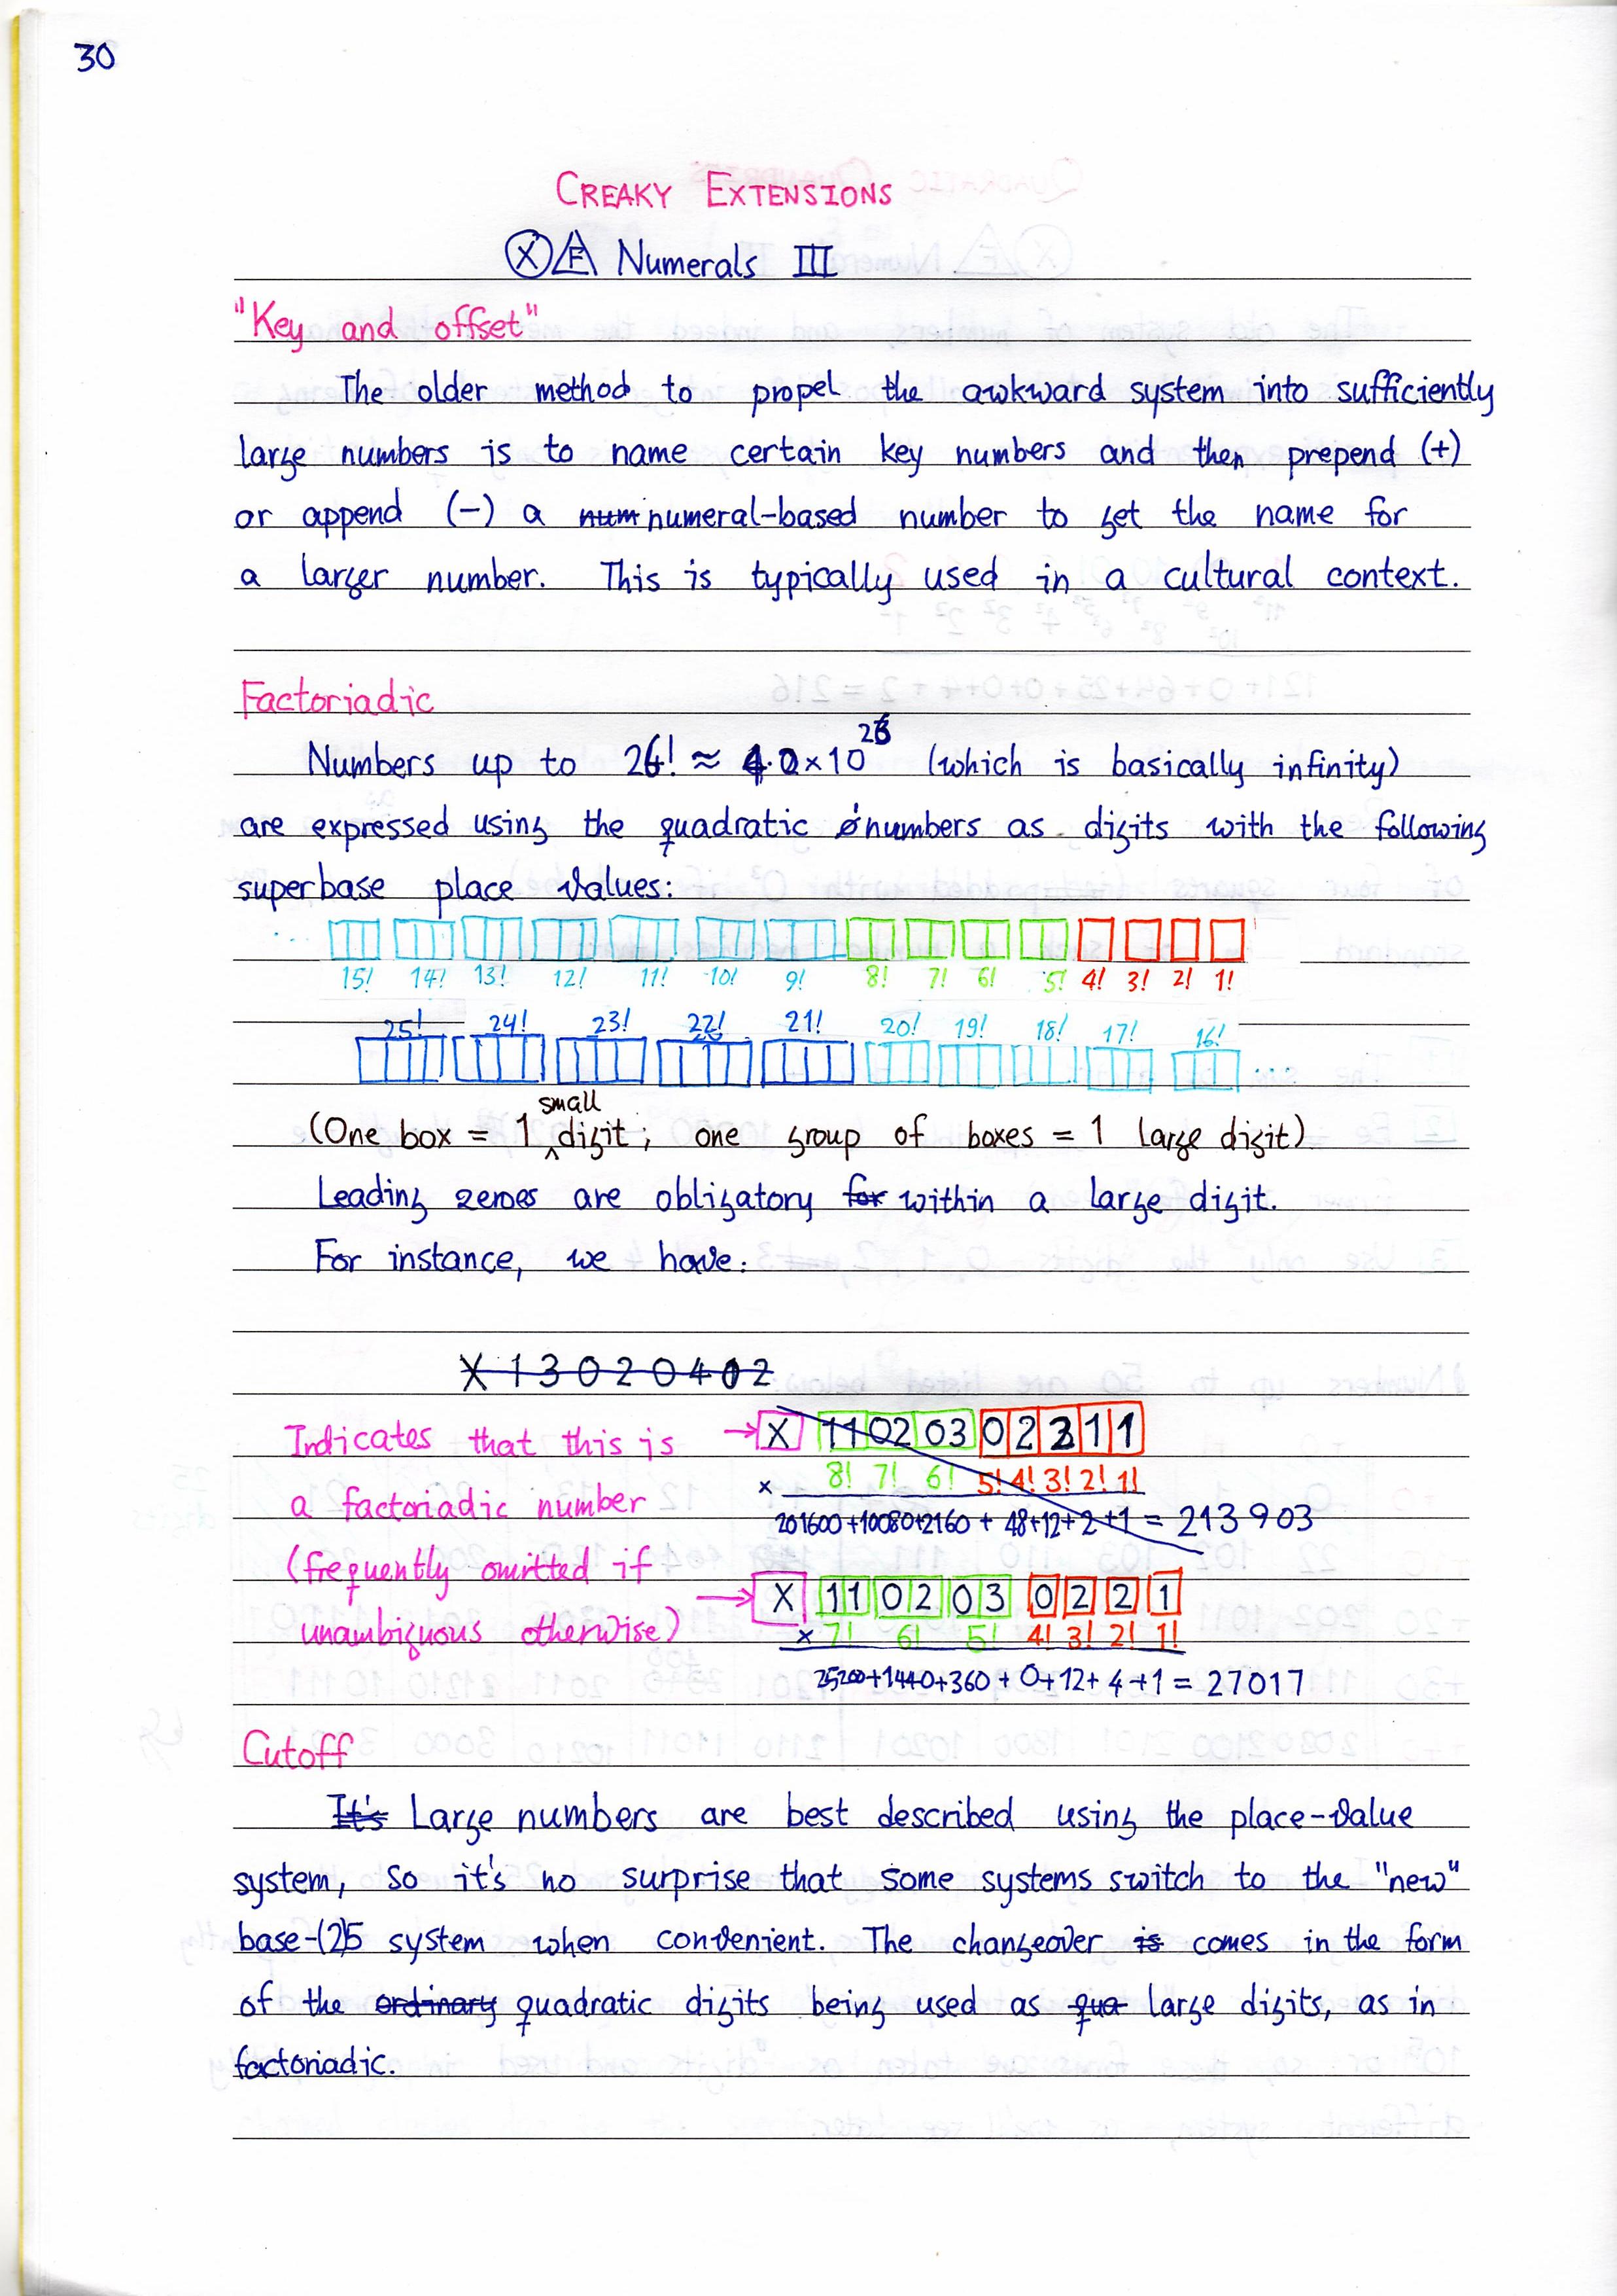 30
CREAKY EXTENSIONS
X E Numerals III
"Key and offset"
The older method to propel the awkward system into sufficiently
large numbers is to name certain key numbers and then prepend (+)
or append (-) a num numeral-based number to get the name for
a larger number. This is typically used in a cultural context.
Factoriadic
Numbers up to 26! ≈ 4.0×10²⁶ (which is basically infinity)
are expressed using the quadratic numbers as digits with the following
superbase place values:
... 15! 14! 13! 12! 11! 10! 9! 8! 7! 6! 5! 4! 3! 2! 1!
25! 24! 23! 22! 21! 20! 19! 18! 17! 16! ...
(One box = 1 small digit; one group of boxes = 1 large digit)
Leading zeroes are obligatory for within a large digit.
For instance, we have:
X 1 3 0 2 0 4 0 2
Indicates that this is → X 11 02 03 0 2 2 1 1
8! 7! 6! 5! 4! 3! 2! 1!
a factoriadic number ×
201600+10080+2160 + 48+12+2+1 = 213903
(frequently omitted if → X 11 02 03 0 2 2 1
unambiguous otherwise) × 7! 6! 5! 4! 3! 2! 1!
25200+1440+360+0+12+4+1 = 27017
Cutoff
It's Large numbers are best described using the place-value
system, so it's no surprise that some systems switch to the "new"
base-(2)5 system when convenient. The changeover is comes in the form
of the ordinary quadratic digits being used as qua large digits, as in
factoriadic.